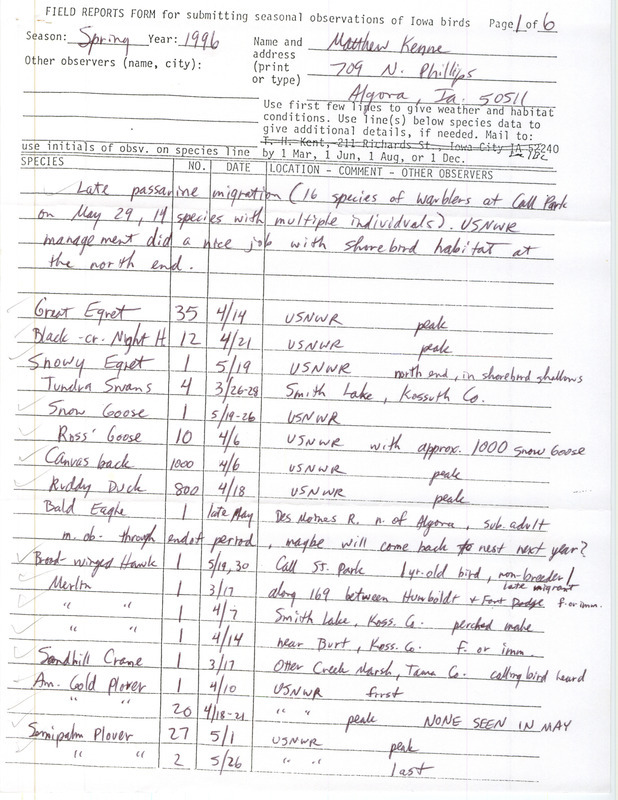 FIELD REPORTS FORM for submitting seasonal observations of Iowa birds Page 1 of 6
Season: Spring Year: 1996 Name and Matthew Kenne
address 709 N. Phillips
Other observers (name, city): (print
or type) Algona, Ia. 50511
Use first few lines to give weather and habitat
conditions. Use line(s) below species data to
give additional details, if needed. Mail to:
T. H. Kent, 211 Richards St., Iowa City IA 52240
use initials of obsv. on species line by 1 Mar, 1 Jun, 1 Aug, or 1 Dec.
SPECIES NO. DATE LOCATION - COMMENT - OTHER OBSERVERS
Late passarine migration (16 species of warblers at Call Park
on May 29, 14 species with multiple individvals). USNWR
management did a nice job with shorebird habitat at
the north end.
Great Egret 35 4/14 USNWR peak
Black-cr. Night H 12 4/21 USNWR peak
Snowy Egret 1 5/19 USNWR north end, in shorebird shallows
Tundra Swans 4 3/26-28 Smith Lake, Kossuth Co.
Snow Goose 1 5/19-26 USNWR
Ross' Goose 10 4/6 USNWR with approx. 1000 Snow Goose
Canvasback 1000 4/6 USNWR peak
Ruddy Duck 800 4/18 USNWR peak
Bald Eagle 1 late May Des Moines R. n. of Algona, sub. adult
m. ob. through end of period, maybe will come back to nest next year?
Broad-winged Hawk 1 5/19,30 Call St. Park 1 yr. old bird, non-breeder/
late migrant
Merlin 1 3/17 along 169 between Humboldt + Fort Dodge f. or imm.
" " 1 4/7 Smith Lake, Koss. Co. perched male
" " 1 4/14 near Burt, Koss. Co. f. or imm.
Sandhill Crane 1 3/17 Otter Creek Marsh, Tama Co. calling bird heard
Am. Gold Plover 1 4/10 USNWR first
" " 20 4/18-21 " " peak NONE SEEN IN MAY
Semipalm Plover 27 5/1 USNWR peak
" " 2 5/26 " " last